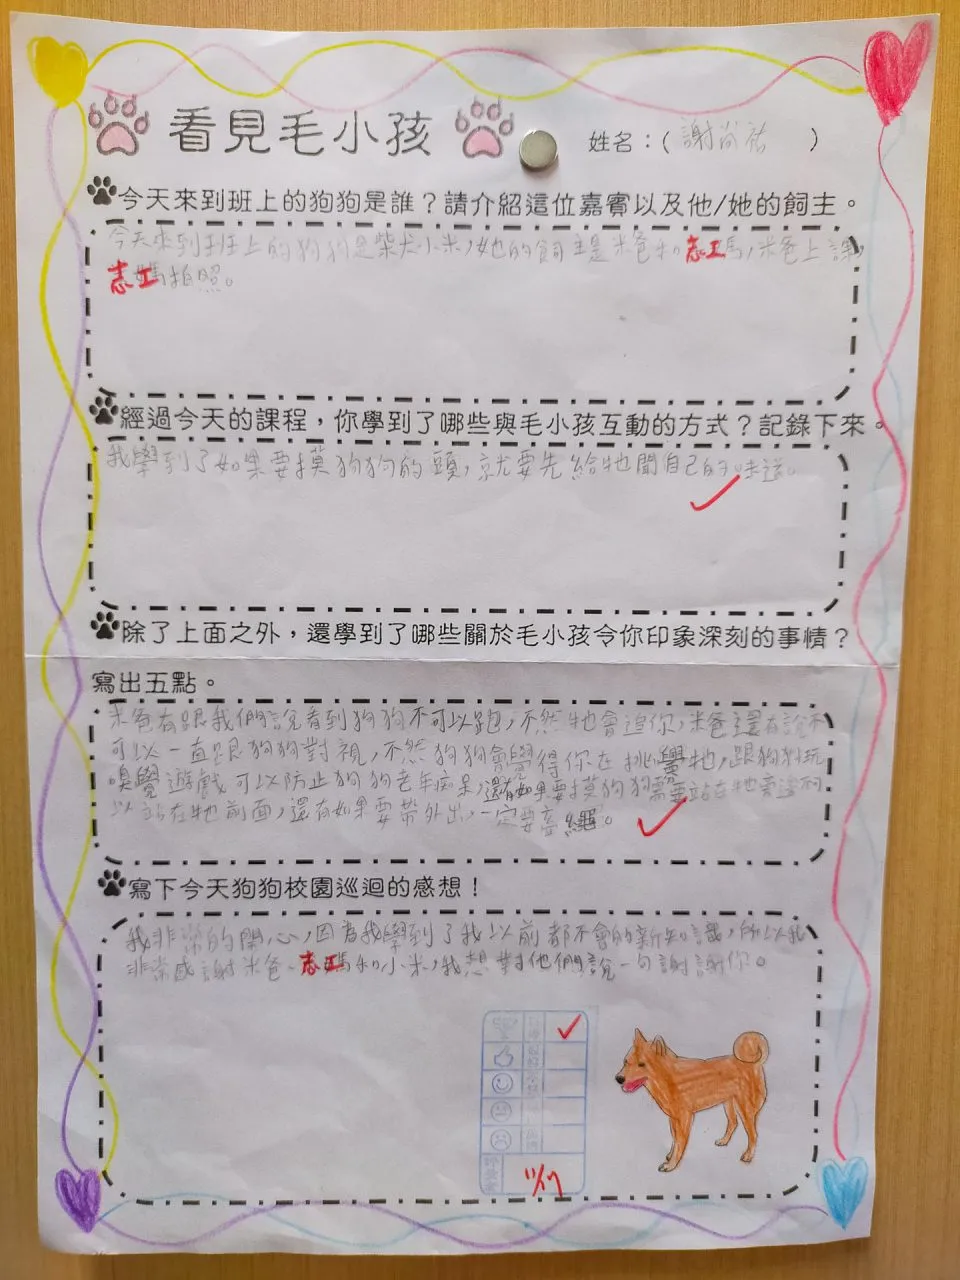 看見毛小孩
姓名：（謝尚祐）
今天來到班上的狗狗是誰？請介紹這位嘉賓以及他/她的飼主。
今天來到班上的狗狗是柴犬小米，她的飼主是米爸和志工媽，米爸上課，
志工媽拍照。
經過今天的課程，你學到了哪些與毛小孩互動的方式？記錄下來。
我學到了如果要摸狗狗的頭，就要先給牠聞自己的味道。
除了上面之外，還學到了哪些關於毛小孩令你印象深刻的事情？
寫出五點。
米爸有跟我們說看到狗狗不可以跑，不然牠會追你，米爸還有說不
可以一直跟狗狗對視，不然狗狗會覺得你在挑釁牠，跟狗狗玩
嗅覺遊戲可以防止狗狗老年痴呆，還有如果要摸狗狗需要站在牠旁邊不可
以站在牠前面，還有如果要帶外出，一定要牽繩。
寫下今天狗狗校園巡迴的感想！
我非常的開心，因為我學到了我以前都不會的新知識，所以我
非常感謝米爸、志工媽和小米，我想對他們說一句謝謝你。
11/17